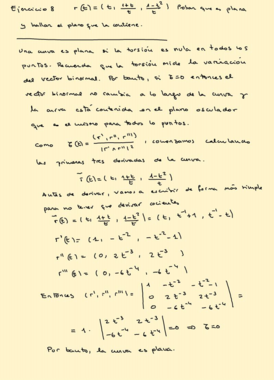 Ejercicio 8   r(t) = (t, (1+t)/t, (1-t²)/t) Probar que es plana
y hallar el plano que la contiene.
Una curva es plana si la torsión es nula en todos los
puntos. Recuerda que la torsión mide la variación
del vector binormal. Por tanto, si τ=0 entonces el
vector binormal no cambia a lo largo de la curva y
la curva está contenida en el plano osculador
que es el mismo para todos los puntos.
Como τ(t) = (r', r'', r''') / |r' ∧ r''|², comenzamos calculando
las primeras tres derivadas de la curva.
r(t) = (t, (1+t)/t, (1-t²)/t)
Antes de derivar, vamos a escribir de forma más simple
para no tener que derivar cocientes
r(t) = (t, (1+t)/t, (1-t²)/t) = (t, t⁻¹+1, t⁻¹-t)
r'(t) = (1, -t⁻², -t⁻²-1)
r''(t) = (0, 2t⁻³, 2t⁻³)
r'''(t) = (0, -6t⁻⁴, -6t⁻⁴)
Entonces (r', r'', r''') = | 1 -t⁻² -t⁻²-1 |
| 0 2t⁻³ 2t⁻³ | =
| 0 -6t⁻⁴ -6t⁻⁴ |
= 1 · | 2t⁻³ 2t⁻³ |
| -6t⁻⁴ -6t⁻⁴ | = 0 ⇒ τ=0
Por tanto, la curva es plana.